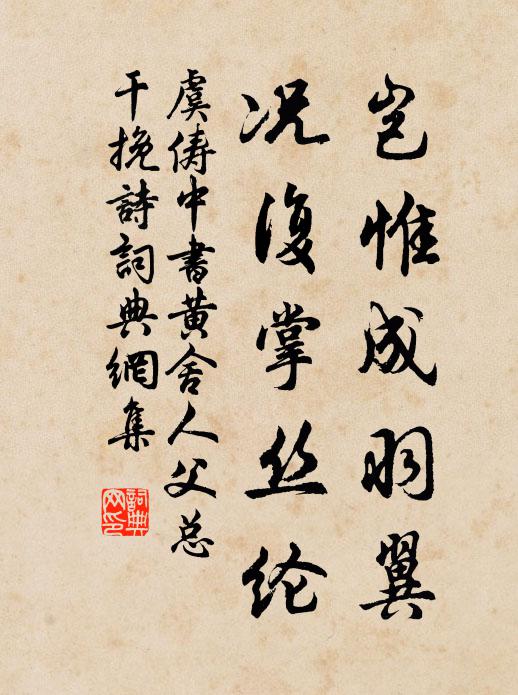 岂惟成羽翼
况复掌丝纶
虞俦中书黄舍人父总
干挽詩詞典網集
詞典
网印